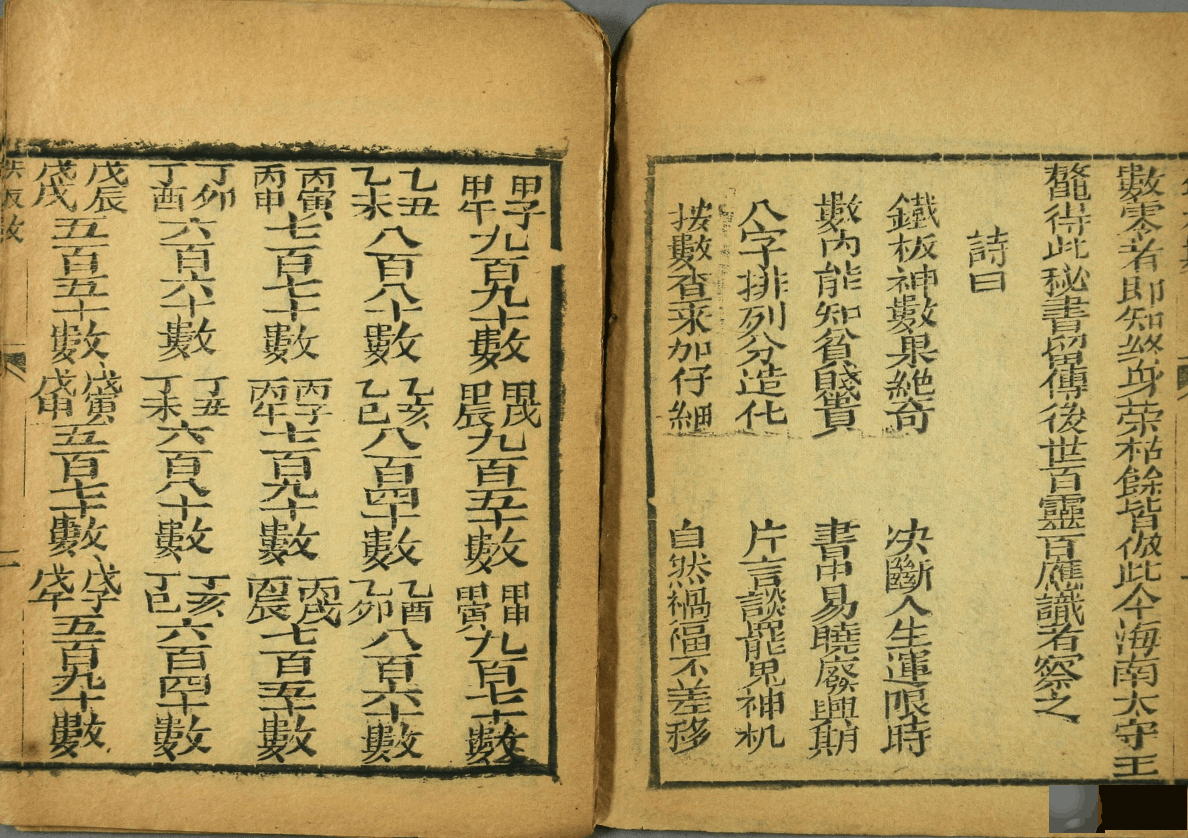 數零者即知終身荣枯餘皆倣此今海南太守王
氂得此秘書留傳後世百靈百應識者察之
詩曰
鐵板神數果絶奇 决斷人生運限時
數内能知貧賤貴 書中易曉廢興期
八字排列分造化 片言談罷鬼神机
按數查来加仔細 自然禍福不差移
甲子 甲午 九百九十數 甲戌 甲辰 九百五十數 甲申 甲寅 九百七十數
乙丑 乙未 八百八十數 乙亥 乙巳 八百四十數 乙酉 乙卯 八百六十數
丙寅 丙申 七百七十數 丙子 丙午 七百九十數 丙戌 丙辰 七百五十數
丁卯 丁酉 六百六十數 丁丑 丁未 六百八十數 丁亥 丁巳 六百四十數
戊辰 戊戌 五百五十數 戊寅 戊申 五百七十數 戊子 戊午 五百九十數
板數 二